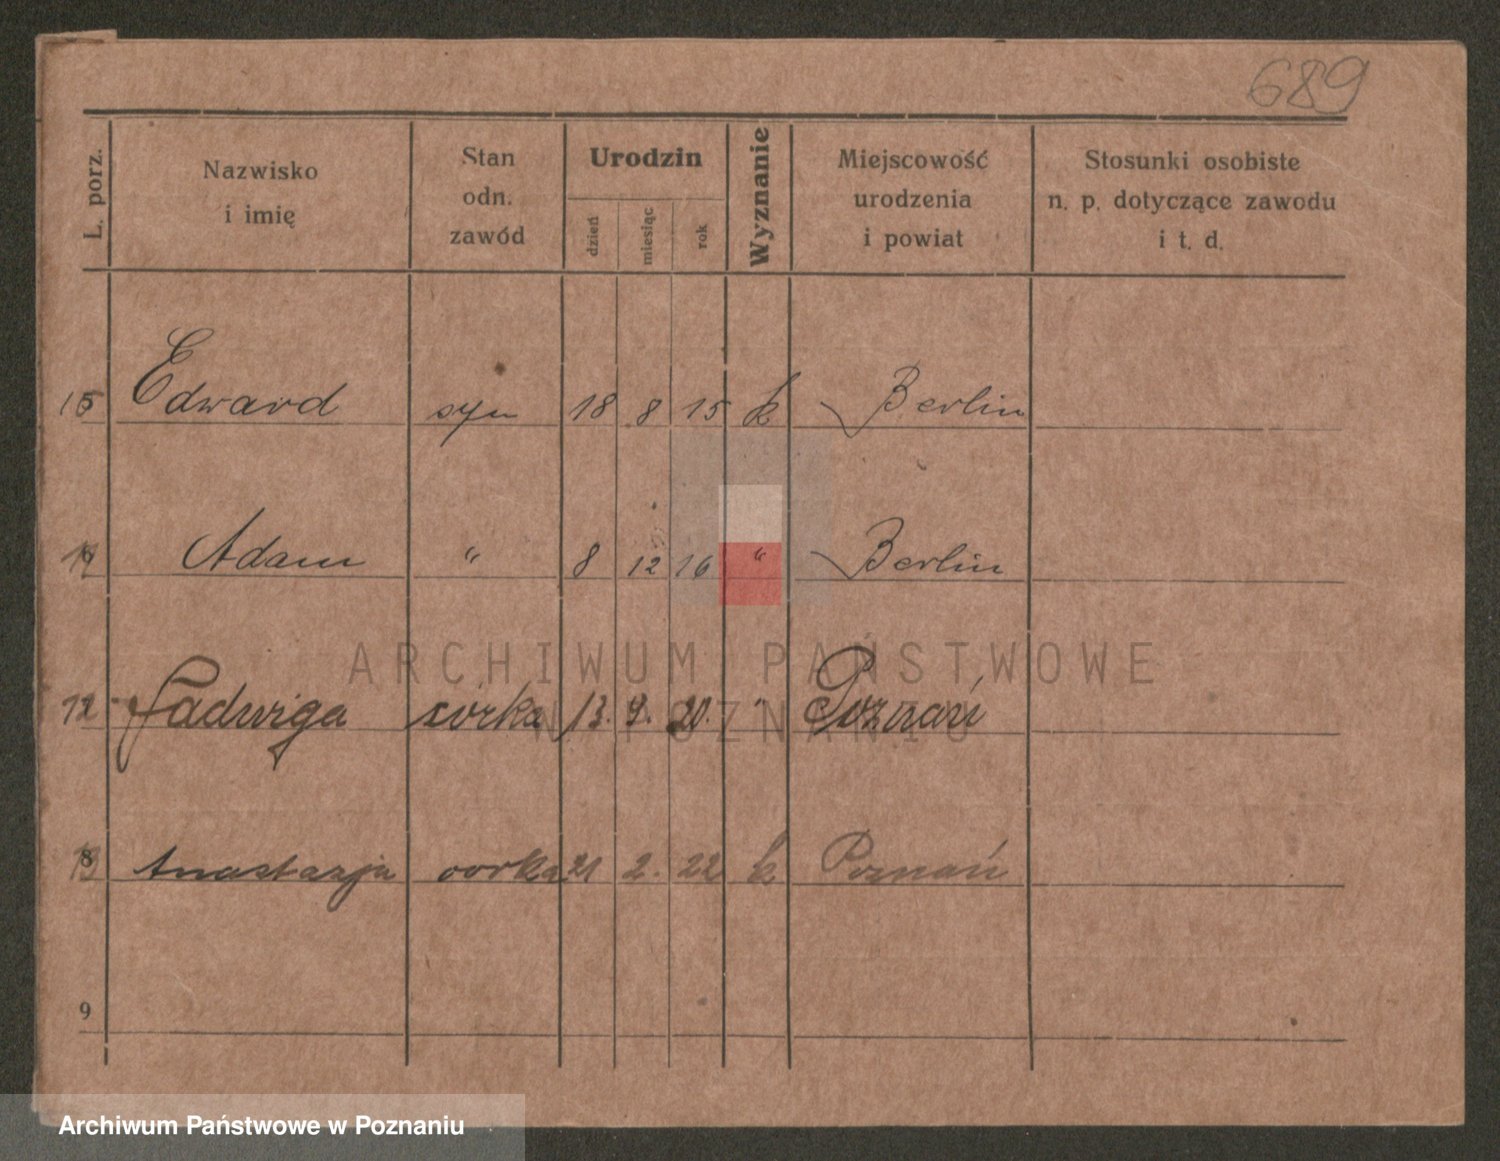 689
L. porz.
Nazwisko
i imię
Stan
odn.
zawód
Urodzin
dzień
miesiąc
rok
Wyznanie
Miejscowość
urodzenia
i powiat
Stosunki osobiste
n. p. dotyczące zawodu
i t. d.
Edward syn 18 8 15 k Berlin
Adam " 8 12 16 " Berlin
12 Jadwiga córka 13. 9. 20. " Poznań
Anastazja córka 21 2. 22 k Poznań
9
ARCHIWUM PAŃSTWOWE
W POZNANIU
Archiwum Państwowe w Poznaniu